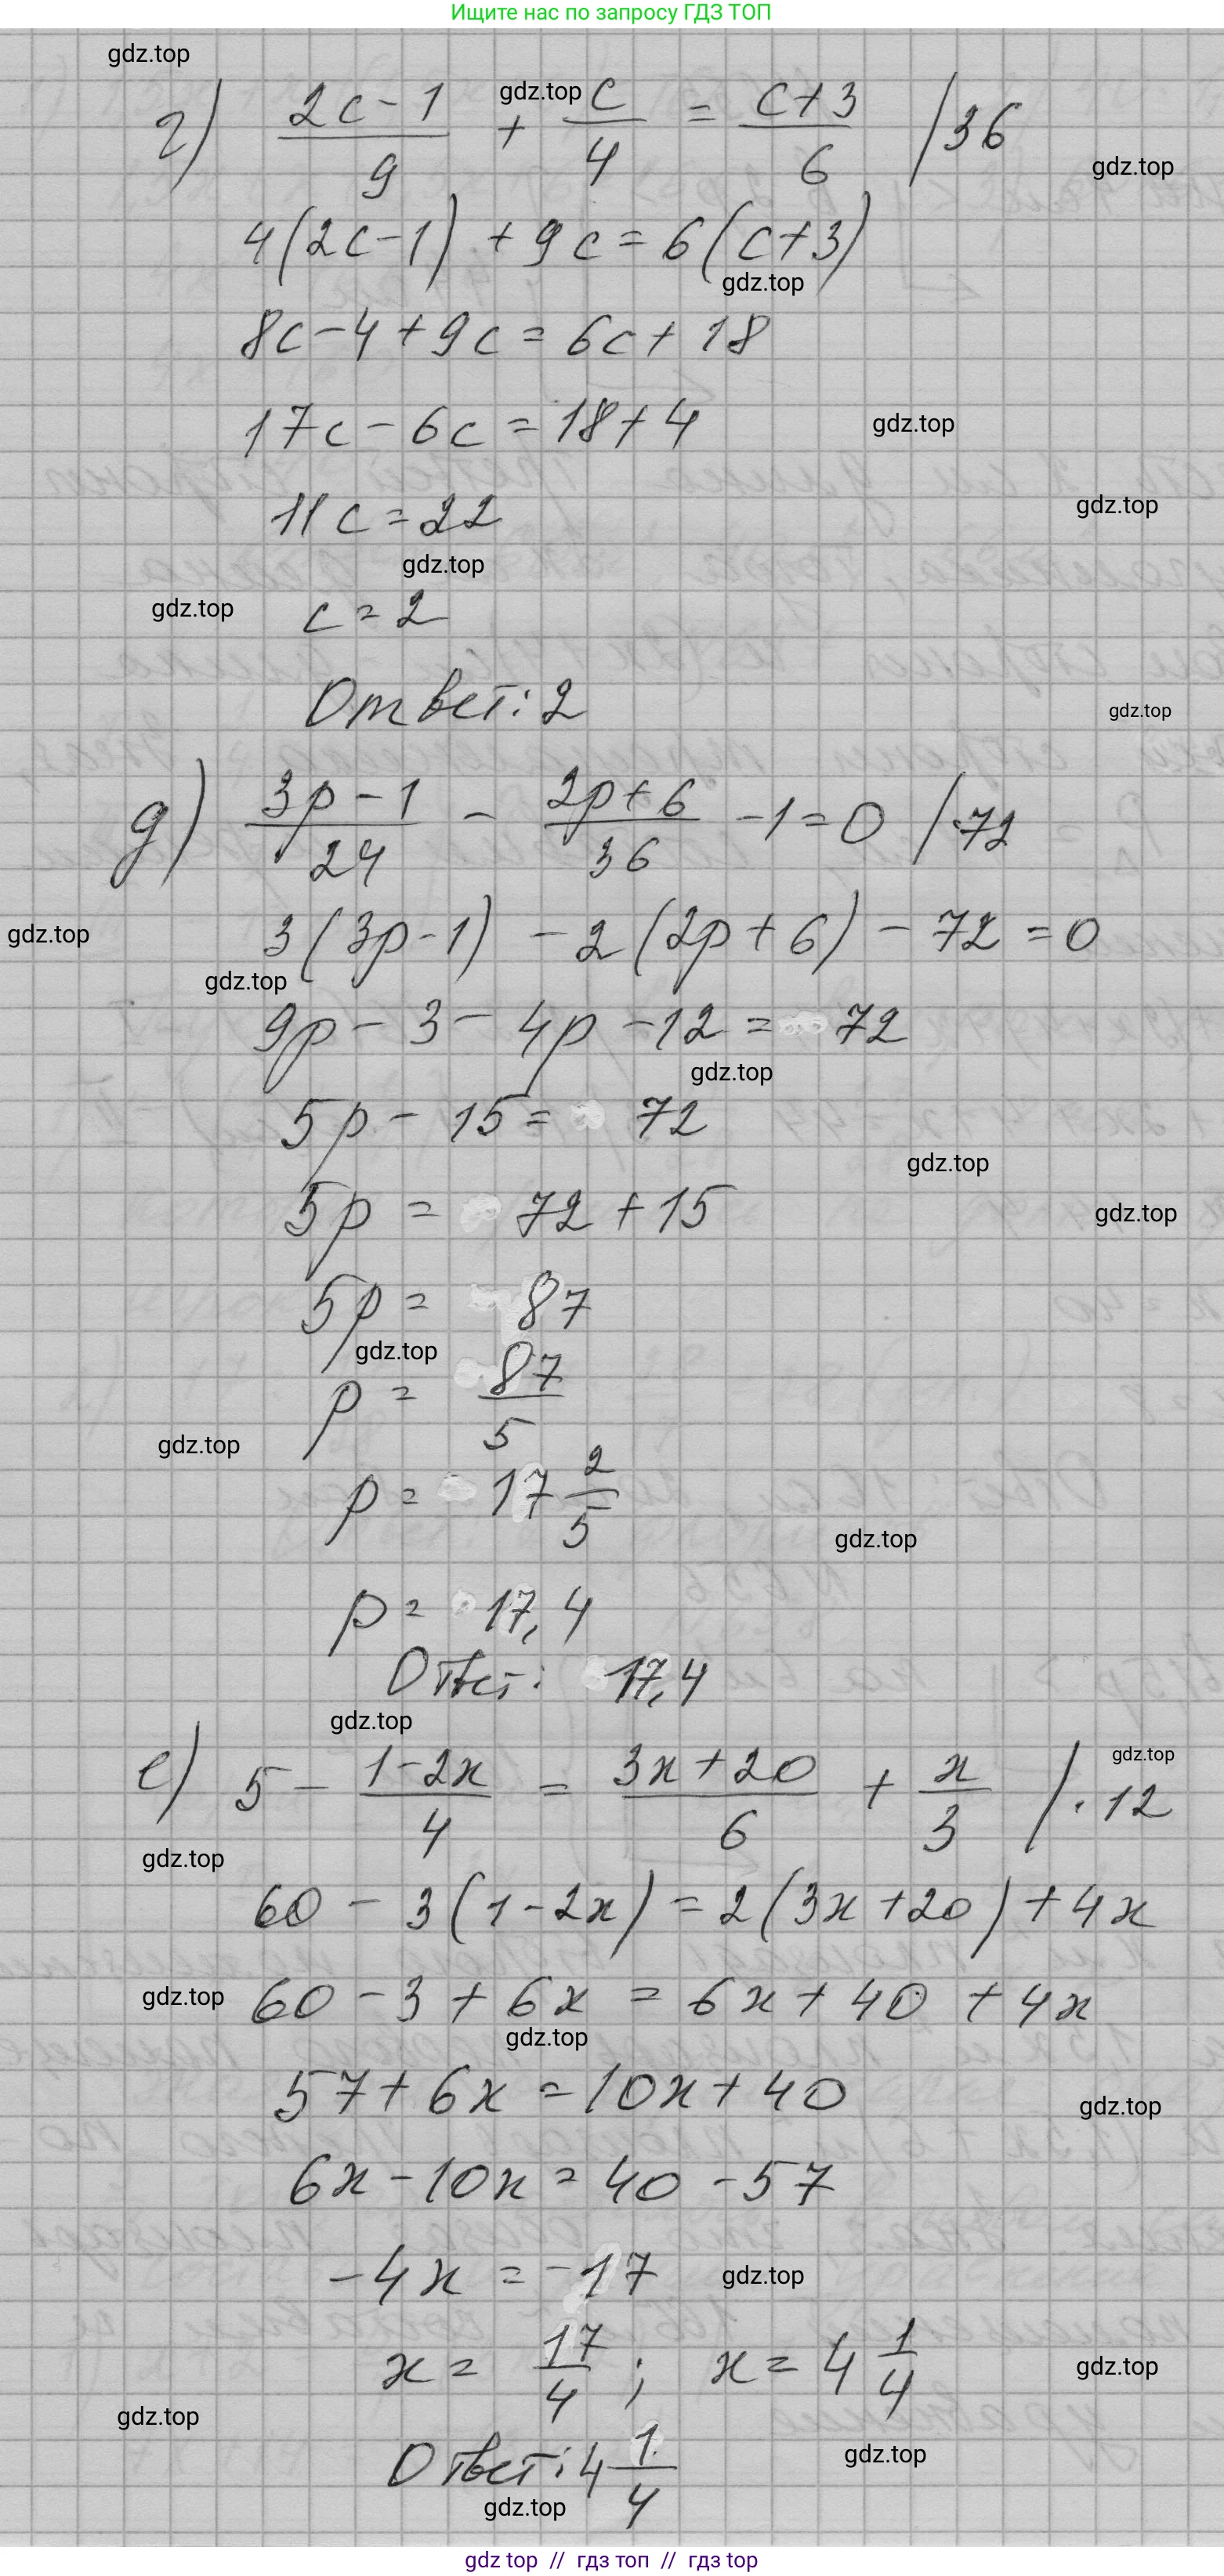 Ищите нас по запросу ГДЗ ТОП
gdz.top
г) (2c-1)/9 + c/4 = (c+3)/6 /36
gdz.top
gdz.top
4(2c-1) + 9c = 6(c+3)
gdz.top
8c-4+9c = 6c+18
17c-6c = 18+4
gdz.top
11c = 22
gdz.top
gdz.top
c = 2
gdz.top
Ответ: 2
gdz.top
д) (3p-1)/24 - (2p+6)/36 - 1 = 0 /·72
3(3p-1) - 2(2p+6) - 72 = 0
gdz.top
gdz.top
9p - 3 - 4p - 12 = 72
gdz.top
5p - 15 = 72
gdz.top
5p = 72 + 15
gdz.top
5p = 87
gdz.top
p = 87/5
gdz.top
p = 17 2/5
gdz.top
p = 17,4
Ответ: 17,4
gdz.top
е) 5 - (1-2x)/4 = (3x+20)/6 + x/3 /·12
gdz.top
gdz.top
60 - 3(1-2x) = 2(3x+20) + 4x
60 - 3 + 6x = 6x + 40 + 4x
gdz.top
gdz.top
57 + 6x = 10x + 40
gdz.top
6x - 10x = 40 - 57
-4x = -17
gdz.top
x = 17/4 ; x = 4 1/4
gdz.top
gdz.top
Ответ: 4 1/4
gdz.top
gdz.top
gdz top // гдз топ // гдз top